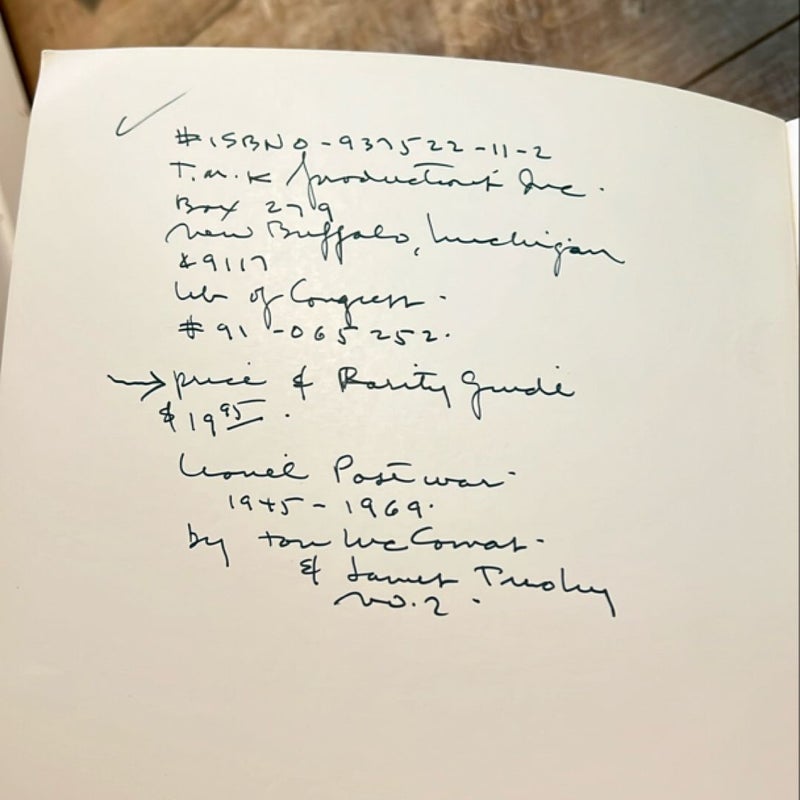 # ISBN 0-937522-11-2
T.M.K productions Inc.
Box 279
New Buffalo, Michigan
49117
Lib of Congress.
# 91-065252.
→ price & Rarity Guide
$19 95.
Lionel Postwar
1945-1969.
by Tom McComas.
& James Tuohy
No. 2.